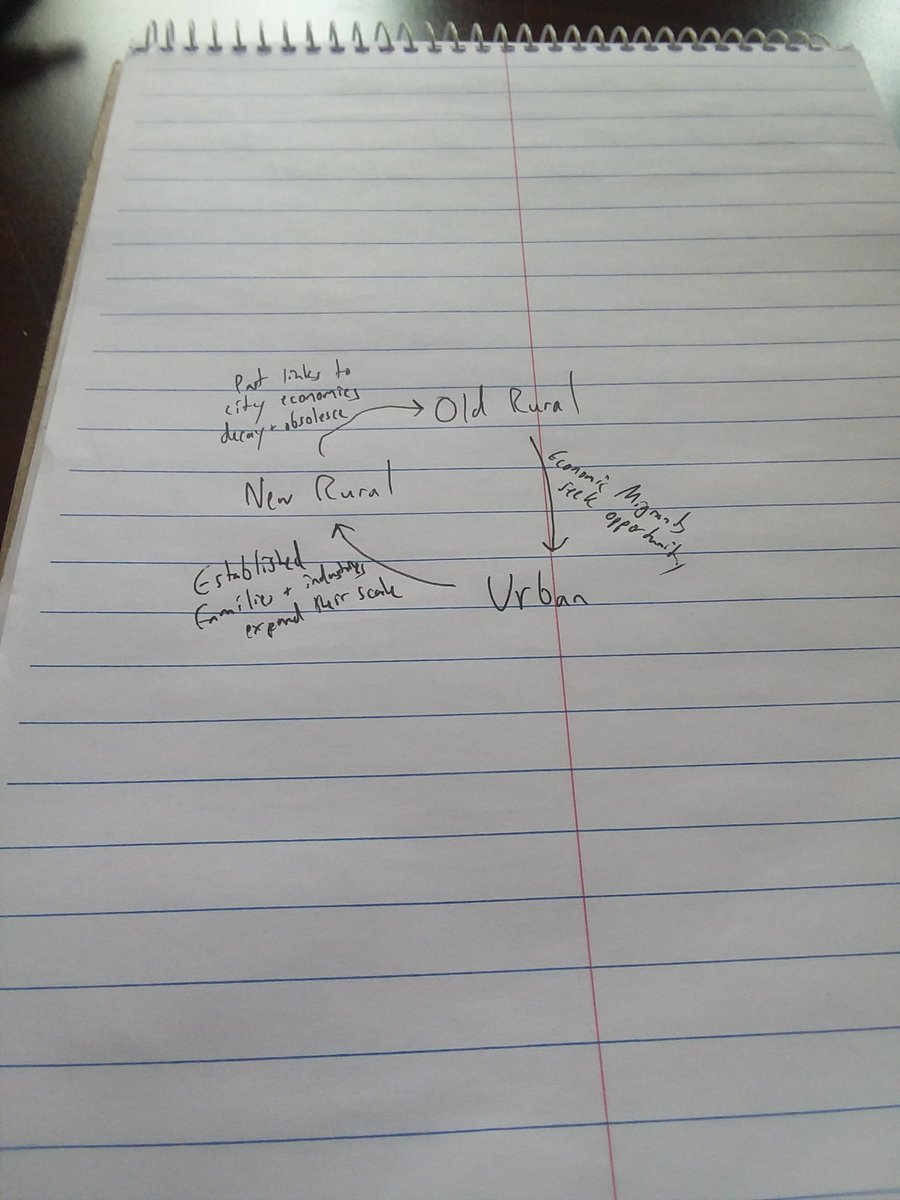 Past links to
city economies
decay + obsolesce
Old Rural
New Rural
Economic Migrants
seek opportunity
Established
Families + industries
expand their scale
Urban